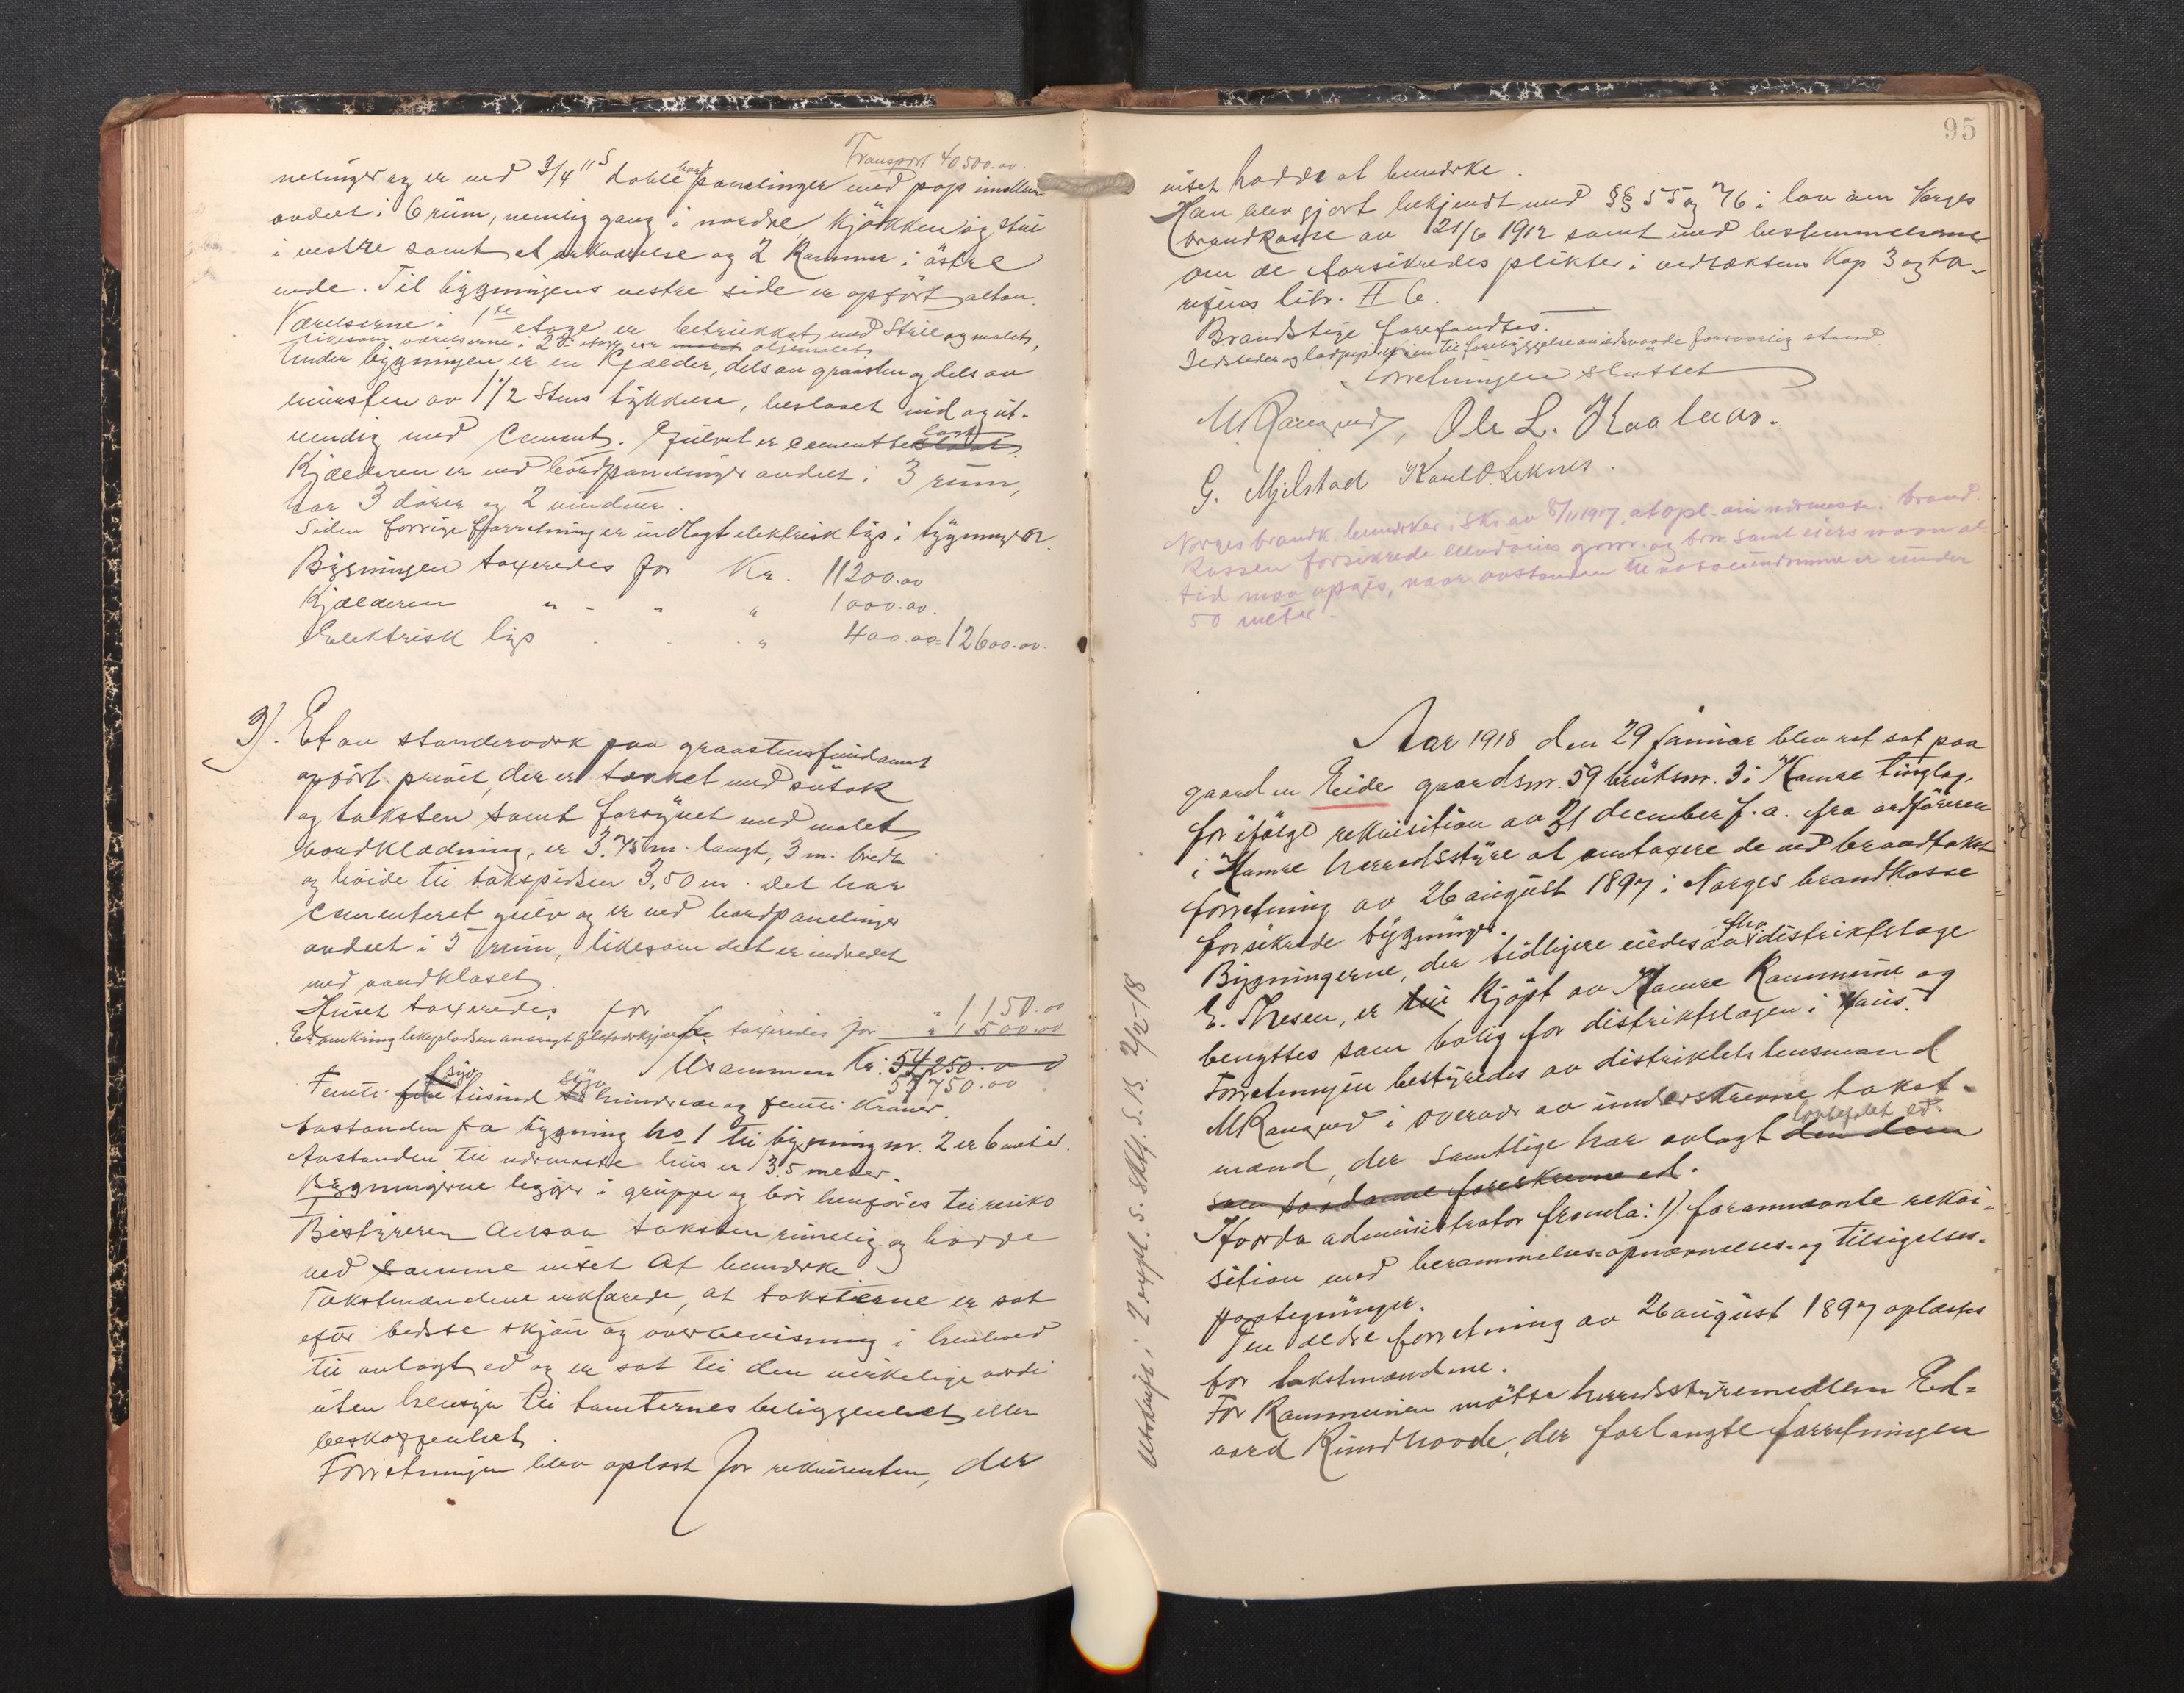 Transport 40500.00
nelinger og er ved 3/4" doble bordpanelinger med pap imellem
avdelt i 6 rum, nemlig gang i nordre, kjökken og stue
i vestre samt et arkværelse og 2 kammer i östre
ende. Til bygningens vestre side er opfört altan.
Værelserne i 1ste etage er betrukket med strie og malet,
likesom værelserne i 2den etage er malet oljemalet
Under bygningen er en Kjælder, dels av graasten og dels av
mursten av 1 1/2 Stens tykkelse, beslaaet ind og ut-
vendig med Cement. Gulvet er cementbe
Kjælderen er ved bordpanelinger avdelt i 3 rum,
har 3 dörer og 2 vinduer.
Siden forrige forretning er indlagt elektrisk lys i bygningen.
Bygningen taxeredes for Kr. 11200.00
Kjælderen " - " " 1000.00.
Elektrisk lys . . . " 400.00 = 12600.00.
3). Et av standerværk paa graastensfundament
opfört privet, der er tækket med sutak
og taksten samt forsynet med malet
bordklædning, er 3.75 m. langt, 3 m. bredt
og höide til takspidsen 3,50 m. Det har
Cementeret gulv og er ved bordpanelinger
avdelt i 5 rum, likesom det er indredet
med vandkloset.
Huset taxeredes for " 1150.00
Et omkring lekepladsen anbragt flettverksgjærde taxeredes for " 1500.00
Tilsammen Kr. 54250.00
57750.00
Femti fire syv tusind syv hundrede og femti kroner.
Avstanden fra bygning no 1 til bygning nr. 2 er 6 meter.
Avstanden til nærmeste hus er 35 meter.
Bygningerne ligger i gruppe og bör henföres til risiko
I
Bestyreren ansaa taksten rimelig og hadde
ved samme intet at bemerke.
Takstmændene erklærede, at taksterne er sat
efter bedste skjön og overbevisning i henhold
til avlagt ed og er sat til den virkelige værdi
uten hensyn til tomternes beliggenhet eller
beskaffenhet.
Forretningen blev oplæst for rekvirenten, der
95
intet hadde at bemerke.
Han blev gjort bekjendt med §§ 55 og 76 i lov om Norges
brandkasse av 21/6 1912 samt med bestemmelserne
om de forsikredes plikter i vedtektens Kap 3 og ta-
riffens litr. H 6.
Brandstige forefandtes.
Ildsteder og lodpiper er i en til forebyggelse av ildsvaade forsvarlig stand.
Forretningen sluttet
M Rangved, Ole L. Kaaleaas.
G. Mjelstad Karl O. Leknes.
Norges brandk. bemerker i skr av 8/11 1917, at opl. om nærmeste i brand-
kassen forsikrede eiendoms gnr. og bnr. samt eiers navn al-
tid maa opgis, naar avstanden til naboeiendommen er under
50 meter.
Aar 1918 den 29 januar blev ret sat paa
gaarden Eide gaardsnr. 59 bruksnr. 3 i Hamre tinglag,
for ifölge rekvisition av 31 december f. a. fra ordföreren
i Hamre herredsstyre at omtaxere de ved brandtakst
forretning av 26 august 1897 i Norges brandkasse
forsikrede bygninger.
Bygningerne, der tidligere eiedes av fhv. distriktslæge
E. Thesen, er kjöpt av Hamre Kommune og
benyttes som bolig for distriktslægen i Haus.
Forretningen bestyredes av distriktets lensmand
M Rangved i overvær av undertegnede takst-
mænd, der samtlige har avlagt den dem lovbefalet ed.
som saadanne foreskrevne ed.
Hvorda administrator fremla: 1) forannævnte rekvi-
sition med berammelses- opnævnelses- og tilsigelses-
paategninger.
Den ældre forretning av 26 august 1897 oplæstes
for takstmændene.
For Kommunen mötte herredsstyremedlem Ed-
vard Rundhovde, der forlangte forretningen
Utskrift i 2 expl. s. skhf. S. B. 2/2-18